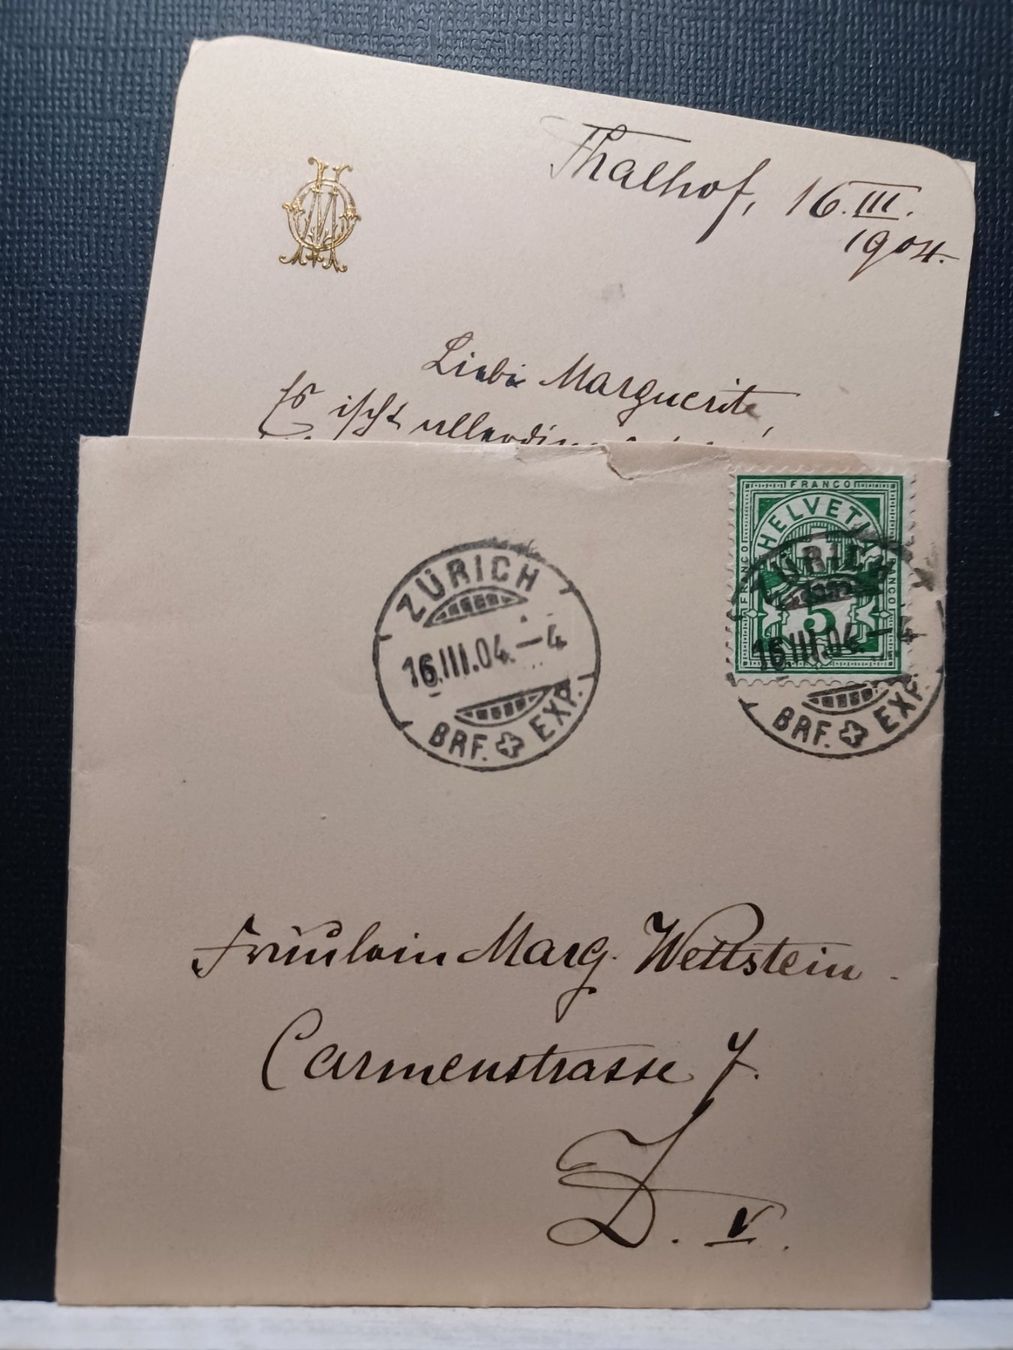 Thalhof, 16. III.
1904.
Liebe Marguerite,
Es ischt allerdings
FRANCO
HELVETIA
FRANCO
FRANCO
5
ZÜRICH
16.III.04.–4
BRF. EXP.
ZÜRICH
16.III.04.–4
BRF. EXP.
Fräulein Marg. Wettstein.
Carmenstrasse 7.
V.